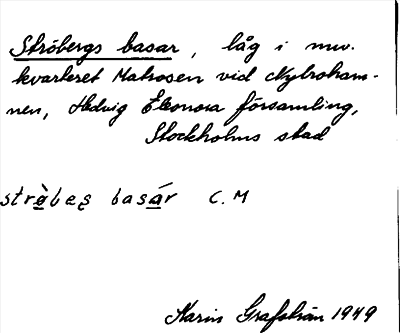 Ströbergs basar, låg i nuv.
kvarteret Matrosen vid Nybroham-
nen, Hedvig Eleonora församling,
Stockholms stad
strö̀bes basár C. M
Karin Grafström 1949